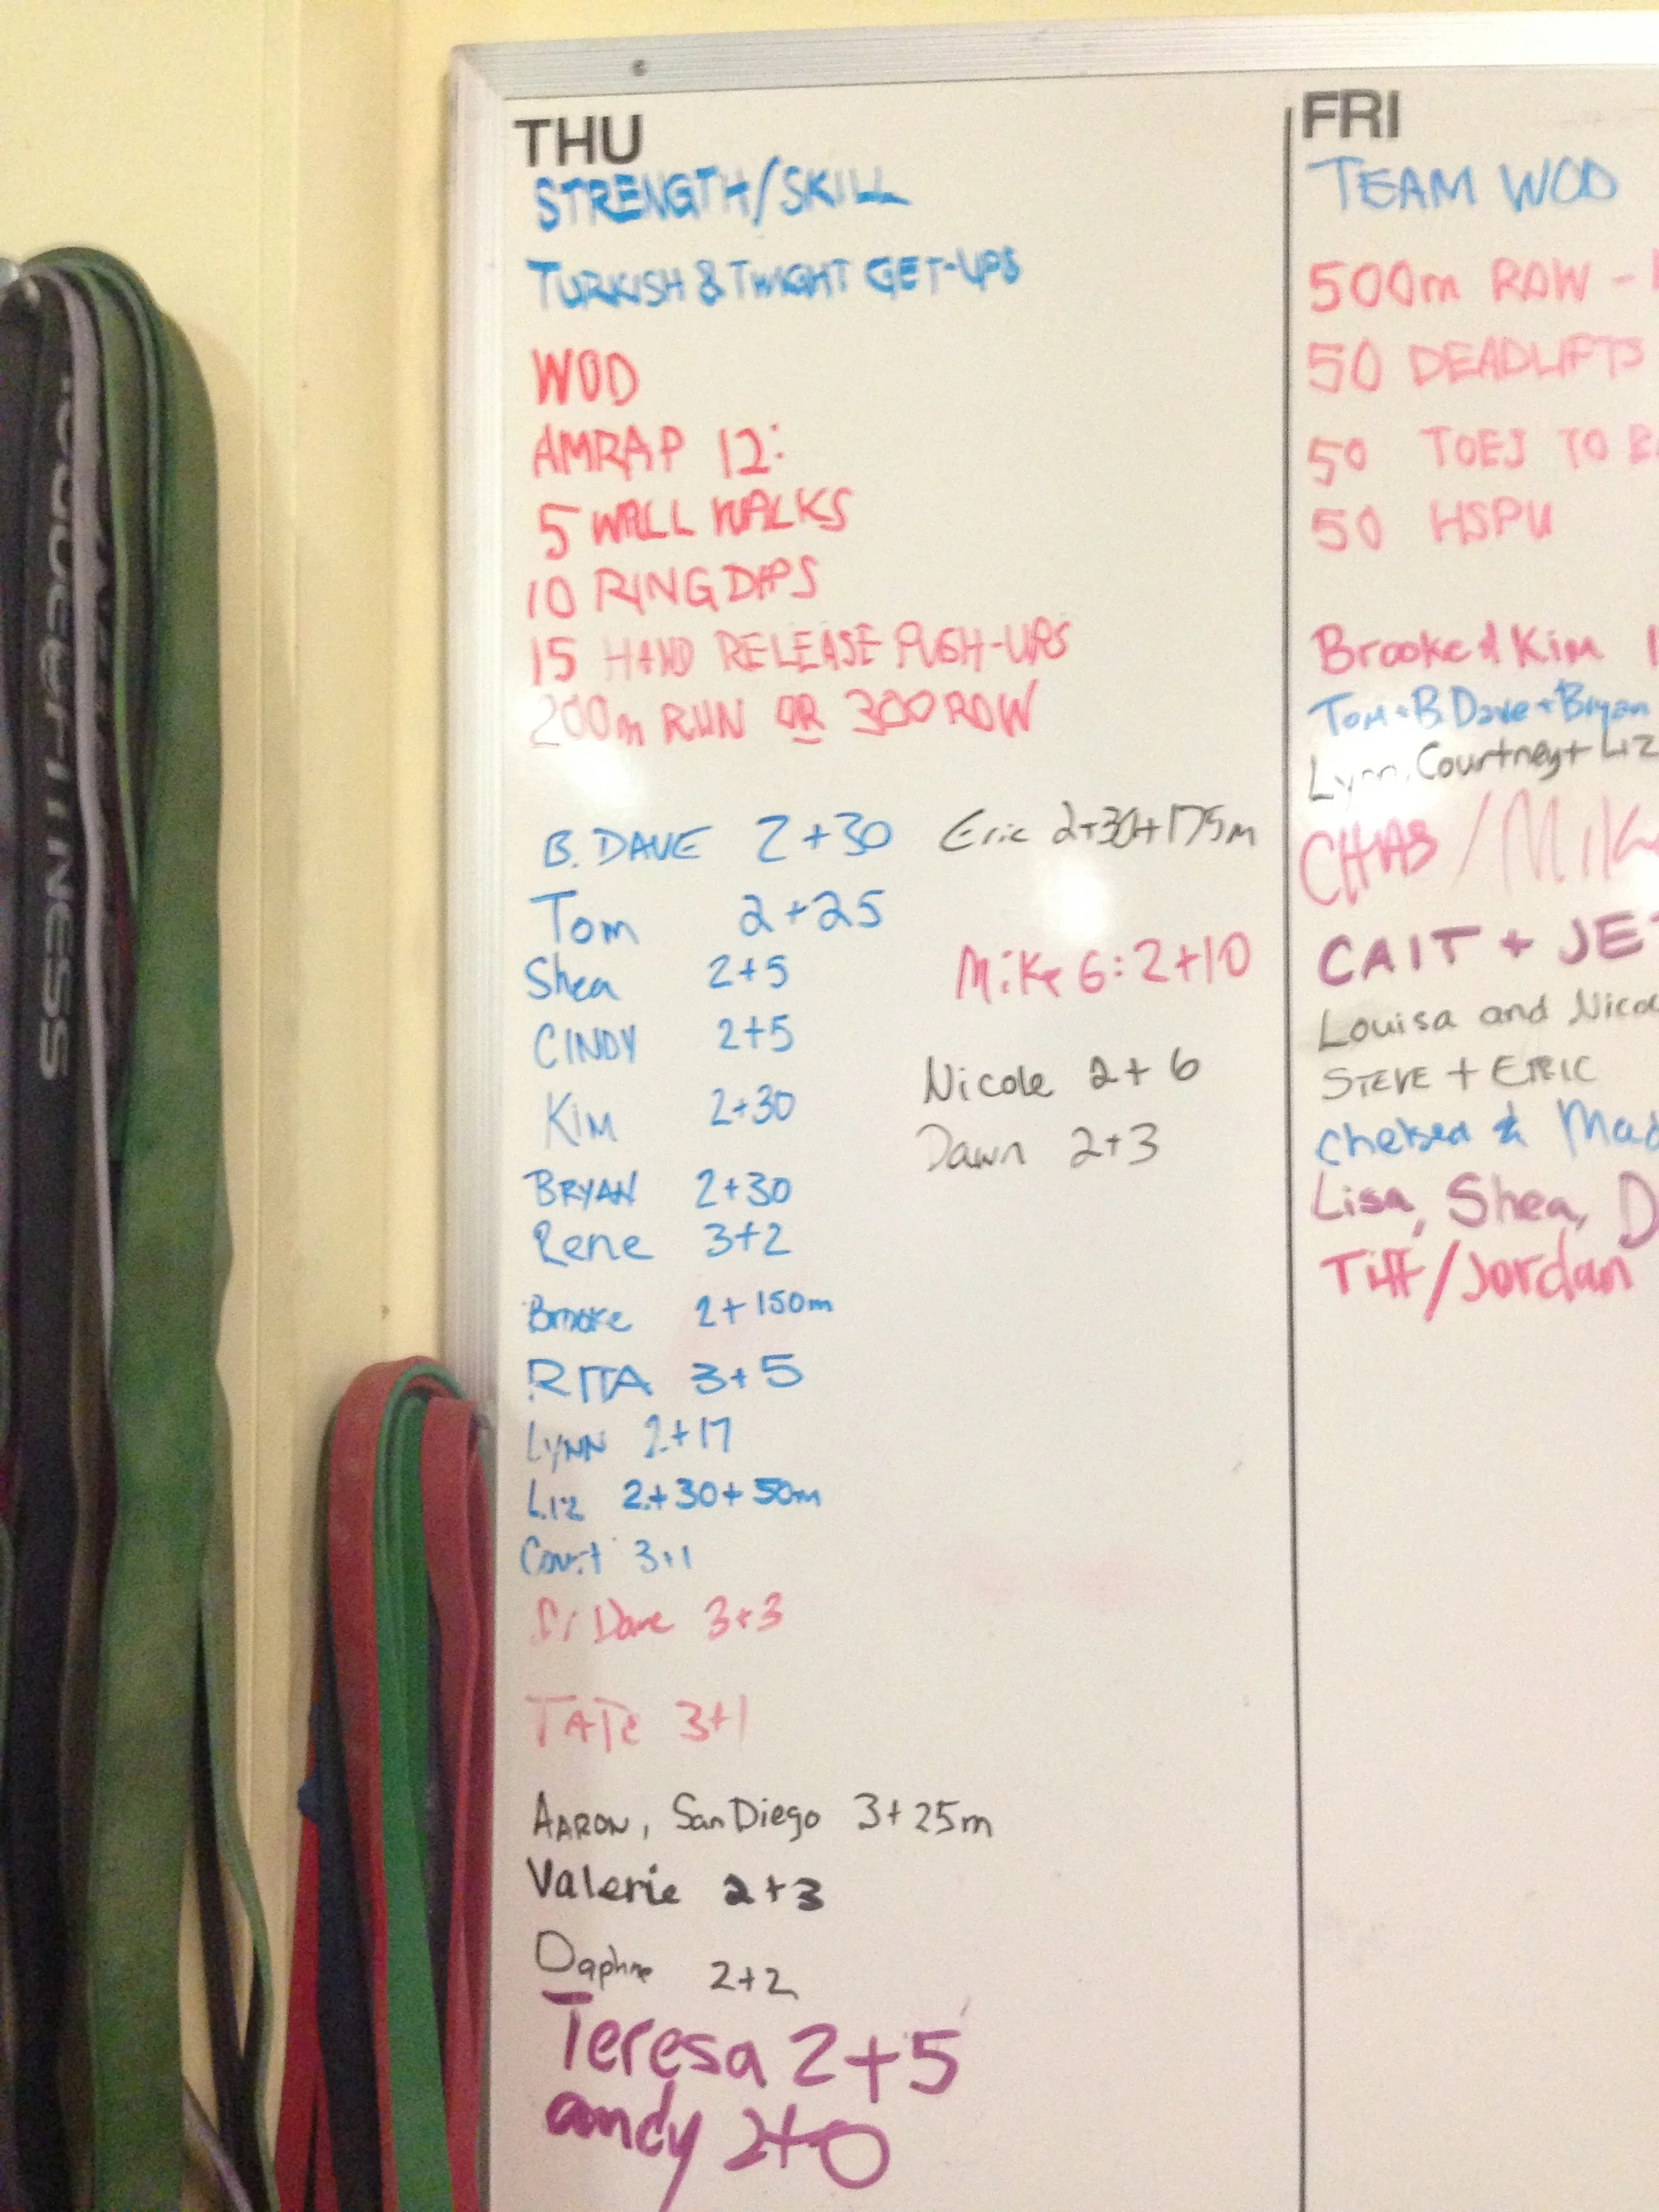 THU
STRENGTH/SKILL
TURKISH & TWIGHT GET-UPS
WOD
AMRAP 12:
5 WALL WALKS
10 RING DIPS
15 HAND RELEASE PUSH-UPS
200m RUN OR 300 ROW
B. DAVE 2+30
Tom 2+25
Shea 2+5
CINDY 2+5
KIM 2+30
BRYAN 2+30
Rene 3+2
Brooke 2+150m
RITA 3+5
LYNN 2+17
Liz 2+30+50m
Court 3+1
Dave 3+3
TATE 3+1
AARON, San Diego 3+25m
Valerie 2+3
Daphne 2+2
Teresa 2+5
andy 2+0
Eric 2+30+175m
Mike G: 2+10
Nicole 2+6
Dawn 2+3
FRI
TEAM WOD
500m ROW -
50 DEADLIFTS
50 TOES TO
50 HSPU
Brooke & Kim
Tom + B. Dave + Bryan
Lynn, Courtney + Liz
CHAS / Mik
CAIT + JE
Louisa and Nico
STEVE + ERIC
Chelsea & Mad
Lisa, Shea, D
Tiff/Jordan
FITNESS